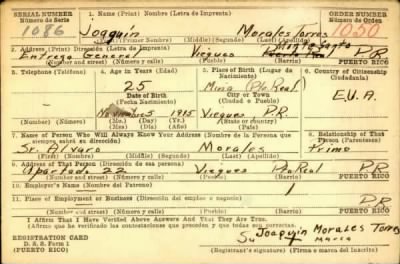 SERIAL NUMBER 1. Name (Print) Nombre (Letra de Imprenta) ORDER NUMBER
Número de Serie Número de Orden
1086 Joaquin Morales Torres 1050
(First) (Primero) (Middle) (Segundo) (Last) (Apellido)
2. Address (Print) Dirección (Letra de Imprenta)
Entrega General Vieques P.R.
(Number and street) (Número y calle) (Town) (Pueblo) PUERTO RICO
3. Telephone (Teléfono) 4. Age in Years (Edad) 5. Place of Birth (Lugar de Nacimiento) 6. Country of Citizenship (Ciudadanía)
25 Pto Real
Date of Birth City or Town
(Fecha Nacimiento) (Ciudad o Pueblo) E.U.A.
Noviembre 5 1915 Vieques P.R.
(Mo.) (Mes) (Day) (Día) (Yr.) (Año) (State or country) (Estado o país)
7. Name of Person Who Will Always Know Your Address (Nombre de la Persona que siempre sabrá su dirección) 8. Relationship of That Person (Parentesco)
Sr. Alvaro Morales Primo
(First) (Primero) (Middle) (Segundo) (Last) (Apellido)
9. Address of That Person (Dirección de esa persona)
Apartado 22 Vieques Pto Real P.R.
(Number and street) (Número y calle) (Town) (Pueblo) PUERTO RICO
10. Employer's Name (Nombre del Patrono)
11. Place of Employment or Business (Dirección del empleo o negocio) P.R.
(Number and street) (Número y calle) (Town) (Pueblo) PUERTO RICO
I Affirm That I Have Verified Above Answers And That They Are True.
(Afirmo que he verificado las contestaciones que preceden y que son ciertas)
REGISTRATION CARD Joaquin Morales Torres
D. S. S. Form 1 Su marca
(PUERTO RICO) (Registrant's signature) (Firma o marca del inscrito)